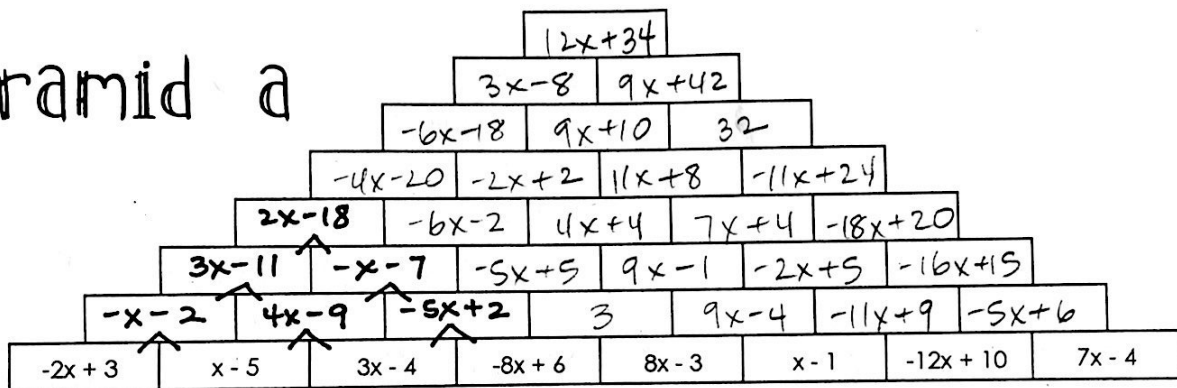 ramid a
12x+34
3x-8 9x+42
-6x-18 9x+10 32
-4x-20 -2x+2 11x+8 -11x+24
2x-18 -6x-2 4x+4 7x+4 -18x+20
3x-11 -x-7 -5x+5 9x-1 -2x+5 -16x+15
-x-2 4x-9 -5x+2 3 9x-4 -11x+9 -5x+6
-2x + 3 x - 5 3x - 4 -8x + 6 8x - 3 x - 1 -12x + 10 7x - 4